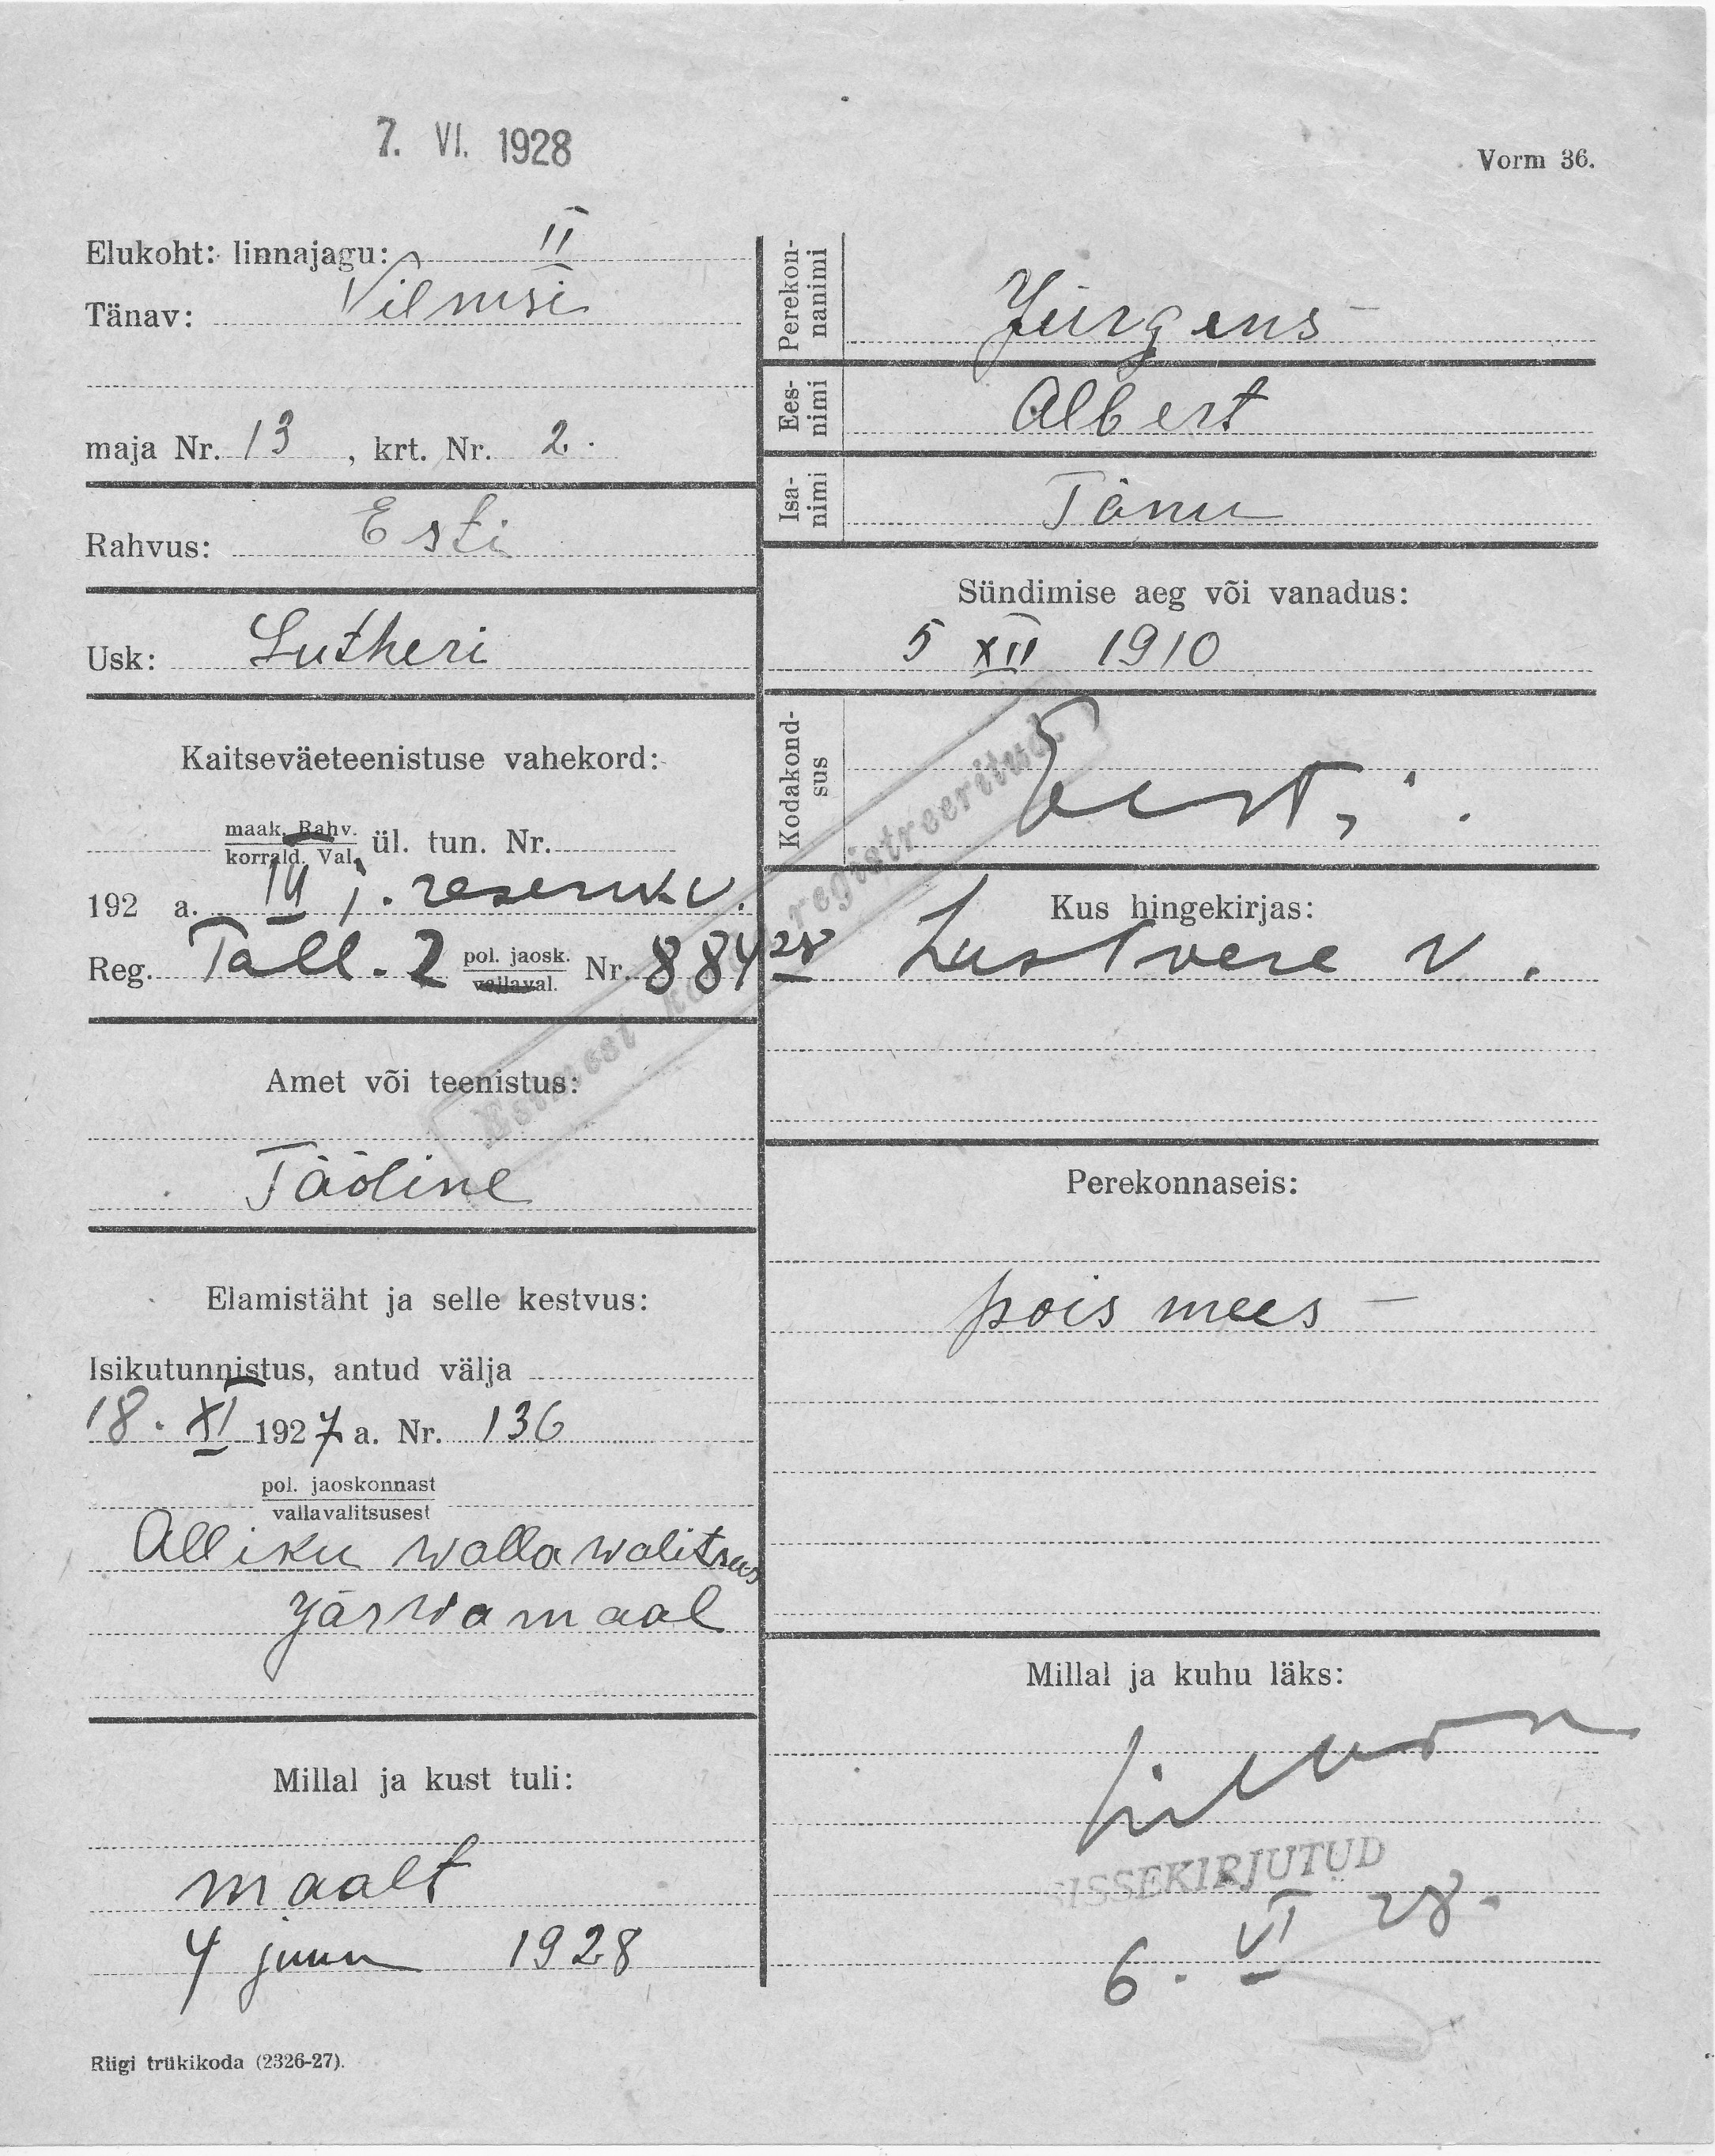 7. VI. 1928
Vorm 36.
Elukoht: linnajagu: II
Tänav: Vilmsi
maja Nr. 13, krt. Nr. 2.
Rahvus: Esti
Usk: Lutheri
Kaitseväeteenistuse vahekord:
maak. Rahv.
korrald. Val. ül. tun. Nr.
192 a.
Reg. Tall. 2 pol. jaosk. Nr. 884 28
vallaval.
Amet või teenistus:
Tööline
Elamistäht ja selle kestvus:
Isikutunnistus, antud välja
18. XI 1927 a. Nr. 136
pol. jaoskonnast
vallavalitsusest
Alliku wallawalitsus
Järwamaal
Millal ja kust tuli:
maalt
4 juun 1928
Riigi trükikoda (2326-27).
Perekon-
nanimi
Jürgens
Ees-
nimi
Albert
Isa-
nimi
Tõnu
Sündimise aeg või vanadus:
5 XII 1910
Kodakond-
sus
Eesti.
registreeritud.
Kus hingekirjas:
Lustvere v.
Perekonnaseis:
pois mees
Millal ja kuhu läks:
SISSEKIRJUTUD
6. VI 28.